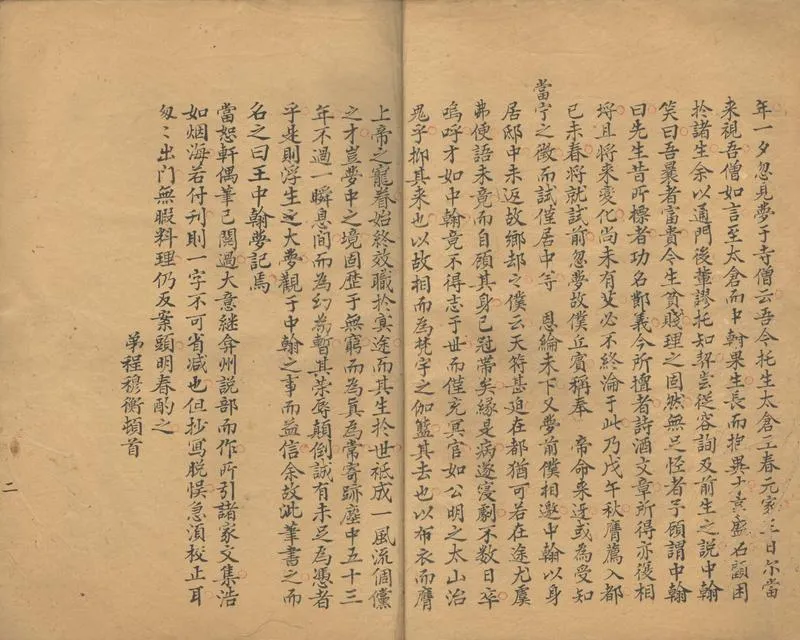 年一夕忽見夢于寺僧云吾今托生太倉王春元家三日尔當
来視吾僧如言至太倉而中翰果生長而抱異才素盛名顧困
扵諸生余以通門後輩謬托知契甞従容詢及前生之説中翰
笑曰吾曩者富貴今生貧賤理之固然無足怪者予顧謂中翰
曰先生昔所標者功名節義今所擅者詩酒文章所得亦復相
埒且将來變化尚未有艾必不終淪于此乃戊午秋膺薦入都
已未春将就試前忽夢故僕丘賓稱奉 帝命来迓或為受知
當宁之徴而試僅居中等 恩綸未下又夢前僕相邀中翰以身
居邸中未返故鄉却之僕云天符甚迫在都猶可若在途尤虞
弗便語未竟而自顧其身已冠帶矣緣是病遂寖劇不数日卒
嗚呼才如中翰竟不得志于世而僅充冥官如公明之太山治
鬼乎抑其来也以故相而為梵宇之伽籃其去也以布衣而膺
上帝之寵眷始終效職扵冥途而其生扵世祗成一風流倜儻
之才豈夢中之境固歴于無窮而為真為常寄跡塵中五十三
年不過一瞬息間而為幻為暫其榮辱顛倒誠有未足為憑者
乎是則浮生之大夢觀于中翰之事而益信余故泚筆書之而
名之曰王中翰夢記焉
當恕軒偶筆已閱過大意継弇州説部而作所引諸家文集浩
如烟海若付刊則一字不可省减也但抄寫脱悮急湏校正耳
匆〻出門無暇料理仍反案頭明春酌之
弟程穆衡頓首
二